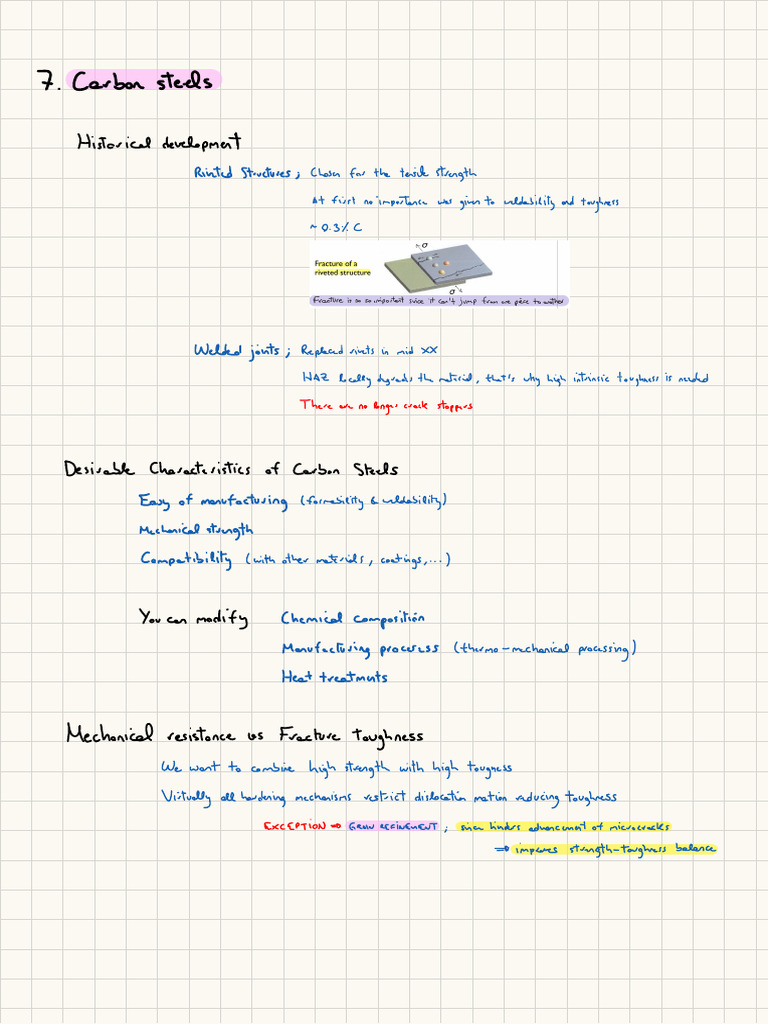 7. Carbon steels
Historical development
Riveted Structures; Chosen for the tensile strength
At first no importance was given to weldability and toughness
~ 0.3% C
σ
Fracture of a
riveted structure
σ
Fracture is so so important since it can't jump from one piece to another
Welded joints; Replaced rivets in mid XX
HAZ locally degrades the material, that's why high intrinsic toughness is needed
There are no longer crack stoppers
Desirable Characteristics of Carbon Steels
Easy of manufacturing (formability & weldability)
Mechanical strength
Compatibility (with other materials, coatings,...)
You can modify Chemical composition
Manufacturing processes (thermo-mechanical processing)
Heat treatments
Mechanical resistance vs Fracture toughness
We want to combine high strength with high tougness
Virtually all hardening mechanisms restrict dislocation motion reducing toughness
EXCEPTION ⇒ GRAIN REFINEMENT; since hinders advancement of microcracks
⇒ improves strength-toughness balance